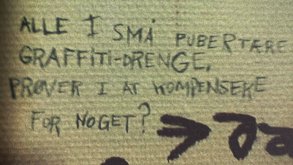 ALLE I SMÅ PUBERTÆRE
GRAFFITI-DRENGE,
PRØVER I AT KOMPENSERE
FOR NOGET?